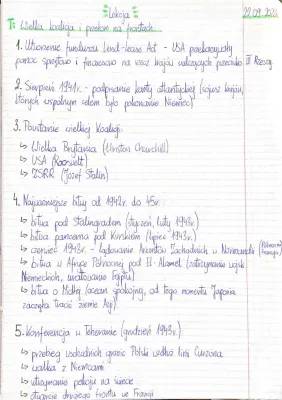 Lekcja
22.09.202
T: Wielka koalicja i przełom na frontach.
1. Utworzenie funduszu Lend-lease Act - USA przekazywały
pomoc sprzętową i finansową na rzecz krajów walczących przeciwko III Rzeszy
2. Sierpień 1941r. - podpisanie karty atlantyckiej (sojusz krajów,
których wspólnym celem było pokonanie Niemiec)
3. Powstanie wielkiej Koalicji:
↳ Wielka Brytania (Winston Churchill)
↳ USA (Roosvelt)
↳ ZSRR (Józef Stalin)
4. Najważniejsze bitwy od 1942r. do 45r.
↳ bitwa pod Stalingradem (styczeń, luty 1943r.)
↳ bitwa pancerna pod Kurskiem (lipiec 1943r.)
↳ czerwiec 1943r. - lądowanie Aliantów Zachodnich w Normandii (Północna Francja)
↳ bitwa w Afryce Północnej pod El-Alamel (zatrzymanie wojsk
Niemieckich, uratowanie Egiptu)
↳ bitwa o Midłey (ocean spokojny, od tego momentu Japonia
zaczęła tracić ziemie Azji)
5. Konferencja w Teheranie (grudzień 1943r.)
↳ przebieg wschodnich granic Polski wedłóż linii Curzona
↳ walka z Niemcami
↳ utrzymanie pokoju na świecie
↳ otwarcie drugiego frontu we Francji